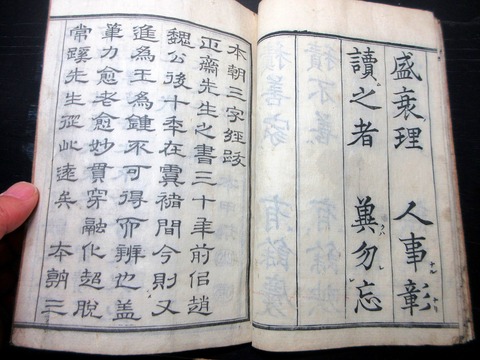 盛衰理 人事彰
讀之者 冀勿忘
本朝三字經跋
正齋先生之書三十年前侣趙
魏公後十季在虞褚間今則又
進為王為鍾不可得而辨也盖
筆力愈老愈妙貫穿融化超脫
常蹊先生從此遠矣 本朝三